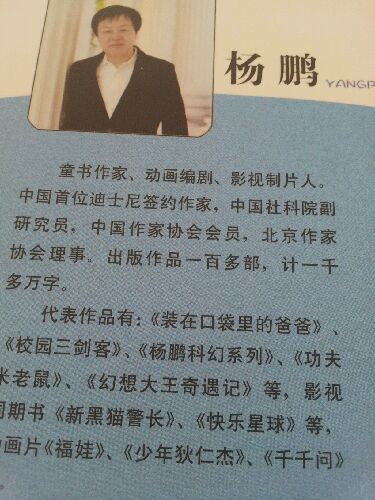 杨鹏
YANGP
童书作家、动画编剧、影视制片人。
中国首位迪士尼签约作家，中国社科院副
研究员，中国作家协会会员，北京作家
协会理事。出版作品一百多部，计一千
多万字。
代表作品有：《装在口袋里的爸爸》、
《校园三剑客》、《杨鹏科幻系列》、《功夫
米老鼠》、《幻想大王奇遇记》等，影视
同期书《新黑猫警长》、《快乐星球》等，
动画片《福娃》、《少年狄仁杰》、《千千问》